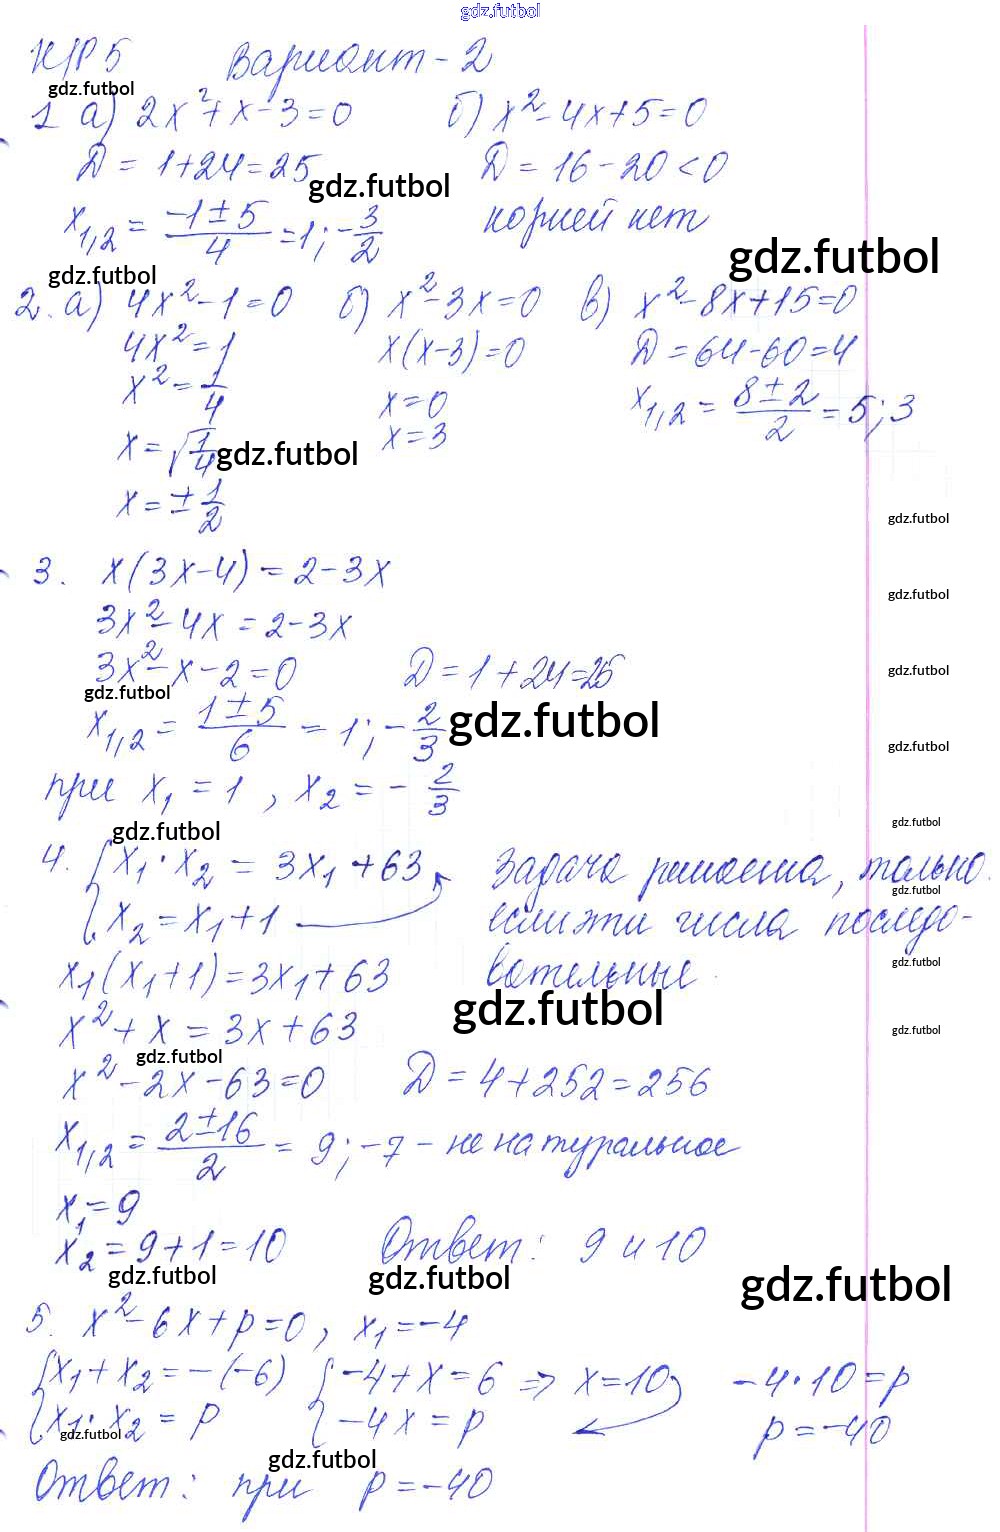 gdz.futbol
К/Р 5 Вариант - 2
gdz.futbol
1 а) 2x²+x-3=0 б) x²-4x+5=0
Д = 1+24=25 Д = 16-20<0
gdz.futbol
x₁,₂ = (-1±5)/4 =1; -3/2 корней нет
gdz.futbol
gdz.futbol
2. а) 4x²-1=0 б) x²-3x=0 в) x²-8x+15=0
4x²=1 x(x-3)=0 Д=64-60=4
x²=1/4 x=0 x₁,₂ = (8±2)/2 =5;3
x=√1/4 x=3
gdz.futbol
x=±1/2
gdz.futbol
3. x(3x-4)=2-3x
gdz.futbol
3x²-4x=2-3x
3x²-x-2=0 Д=1+24=25
gdz.futbol
gdz.futbol
x₁,₂ = (1±5)/6 = 1; -2/3
gdz.futbol
gdz.futbol
при x₁ = 1, x₂ = -2/3
gdz.futbol
gdz.futbol
4. { x₁·x₂ = 3x₁+63 Задача решаема, только
gdz.futbol
x₂ = x₁+1 если эти числа последо-
x₁(x₁+1)=3x₁+63 вательные
gdz.futbol
gdz.futbol
x²+x=3x+63
gdz.futbol
gdz.futbol
x²-2x-63=0 Д=4+252=256
x₁,₂ = (2±16)/2 = 9; -7 - не натуральное
x₁=9
x₂=9+1=10 Ответ: 9 и 10
gdz.futbol
gdz.futbol
gdz.futbol
5. x²-6x+p=0, x₁=-4
{ x₁+x₂=-(-6) { -4+x=6 => x=10 -4·10=p
x₁·x₂=p -4x=p p=-40
gdz.futbol
gdz.futbol
Ответ: при p=-40